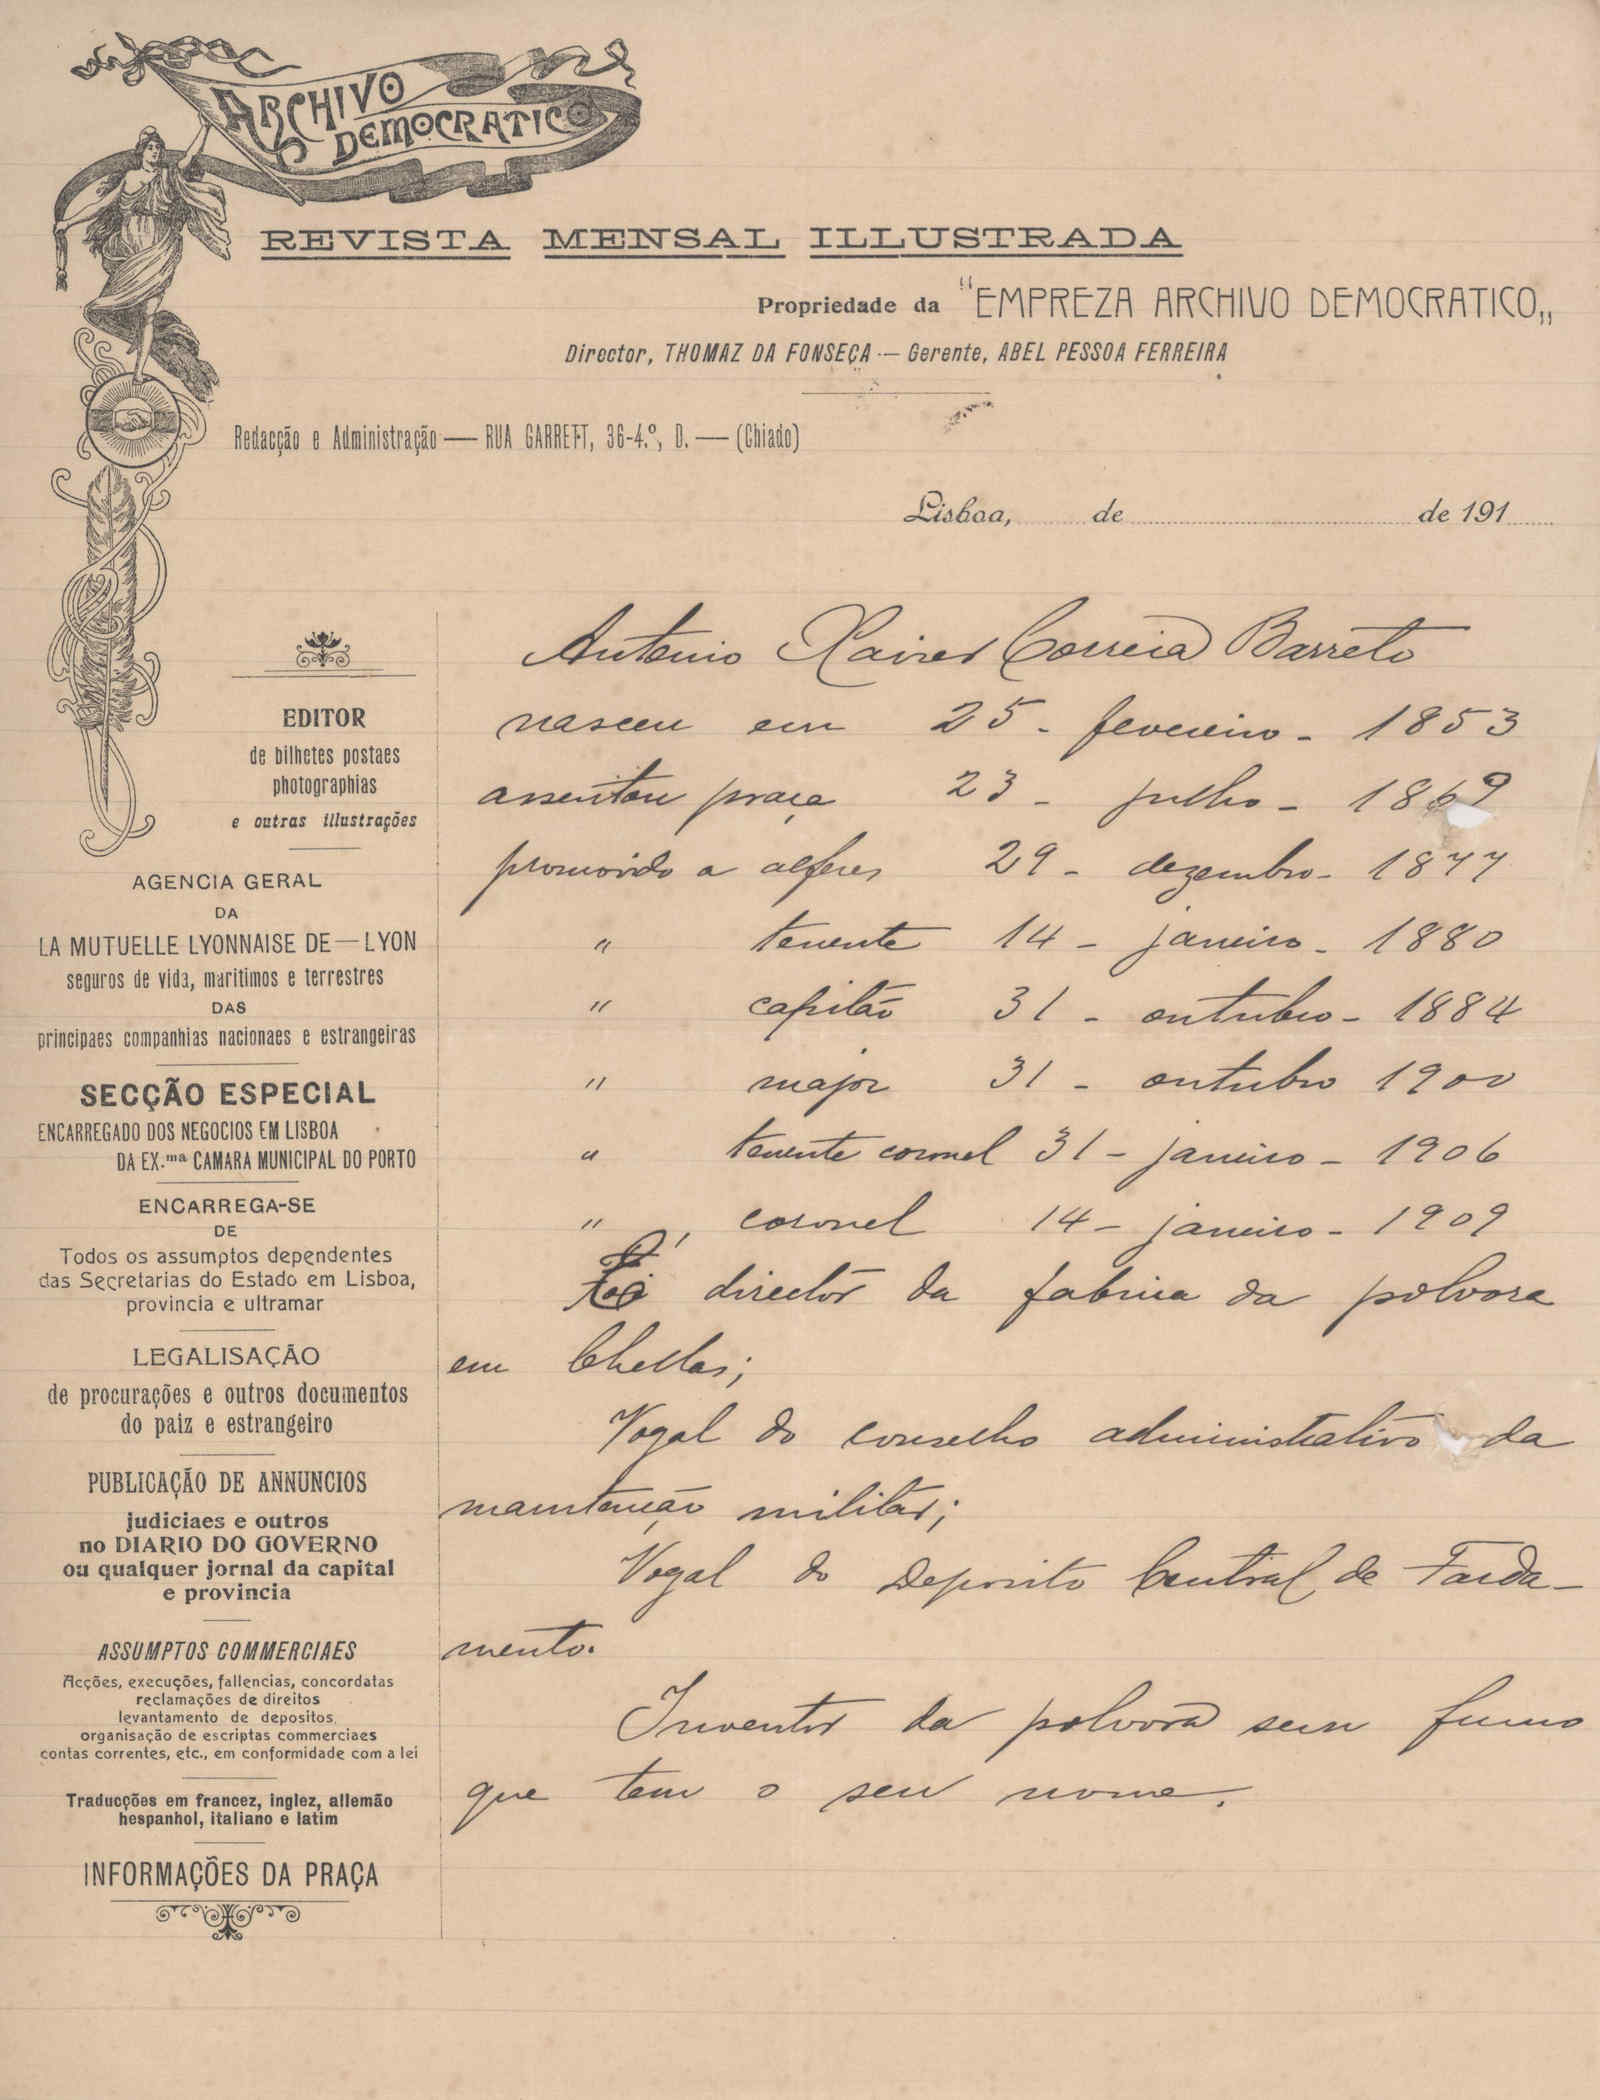 ARCHIVO
DEMOCRATICO
REVISTA MENSAL ILLUSTRADA
Propriedade da "EMPREZA ARCHIVO DEMOCRATICO„
Director, THOMAZ DA FONSECA — Gerente, ABEL PESSOA FERREIRA
Redacção e Administração — RUA GARRETT, 36-4.º, D. — (Chiado)
Lisboa, de de 191
EDITOR
de bilhetes postaes
photographias
e outras illustrações
AGENCIA GERAL
DA
LA MUTUELLE LYONNAISE DE—LYON
seguros de vida, maritimos e terrestres
DAS
principaes companhias nacionaes e estrangeiras
SECÇÃO ESPECIAL
ENCARREGADO DOS NEGOCIOS EM LISBOA
DA EX.ma CAMARA MUNICIPAL DO PORTO
ENCARREGA-SE
DE
Todos os assumptos dependentes
das Secretarias do Estado em Lisboa,
provincia e ultramar
LEGALISAÇÃO
de procurações e outros documentos
do paiz e estrangeiro
PUBLICAÇÃO DE ANNUNCIOS
judiciaes e outros
no DIARIO DO GOVERNO
ou qualquer jornal da capital
e provincia
ASSUMPTOS COMMERCIAES
Acções, execuções, fallencias, concordatas
reclamações de direitos
levantamento de depositos,
organisação de escriptas commerciaes
contas correntes, etc., em conformidade com a lei
Traducções em francez, inglez, allemão
hespanhol, italiano e latim
INFORMAÇÕES DA PRAÇA
Antonio Xavier Correia Barreto
nasceu em 25 - fevereiro - 1853
assentou praça 23 - julho - 1869
promovido a alferes 29 - dezembro - 1877
" tenente 14 - janeiro - 1880
" capitão 31 - outubro - 1884
" major 31 - outubro 1900
" tenente coronel 31 - janeiro - 1906
" coronel 14 - janeiro - 1909
É director da fabrica da polvora
em Chellas;
Vogal do conselho administrativo da
manutenção militar;
Vogal do Deposito Central de Farda-
mento.
Inventor da polvora sem fumo
que tem o seu nome.